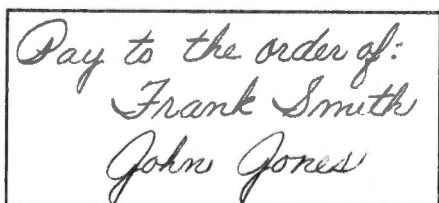 Pay to the order of:
Frank Smith
John Jones